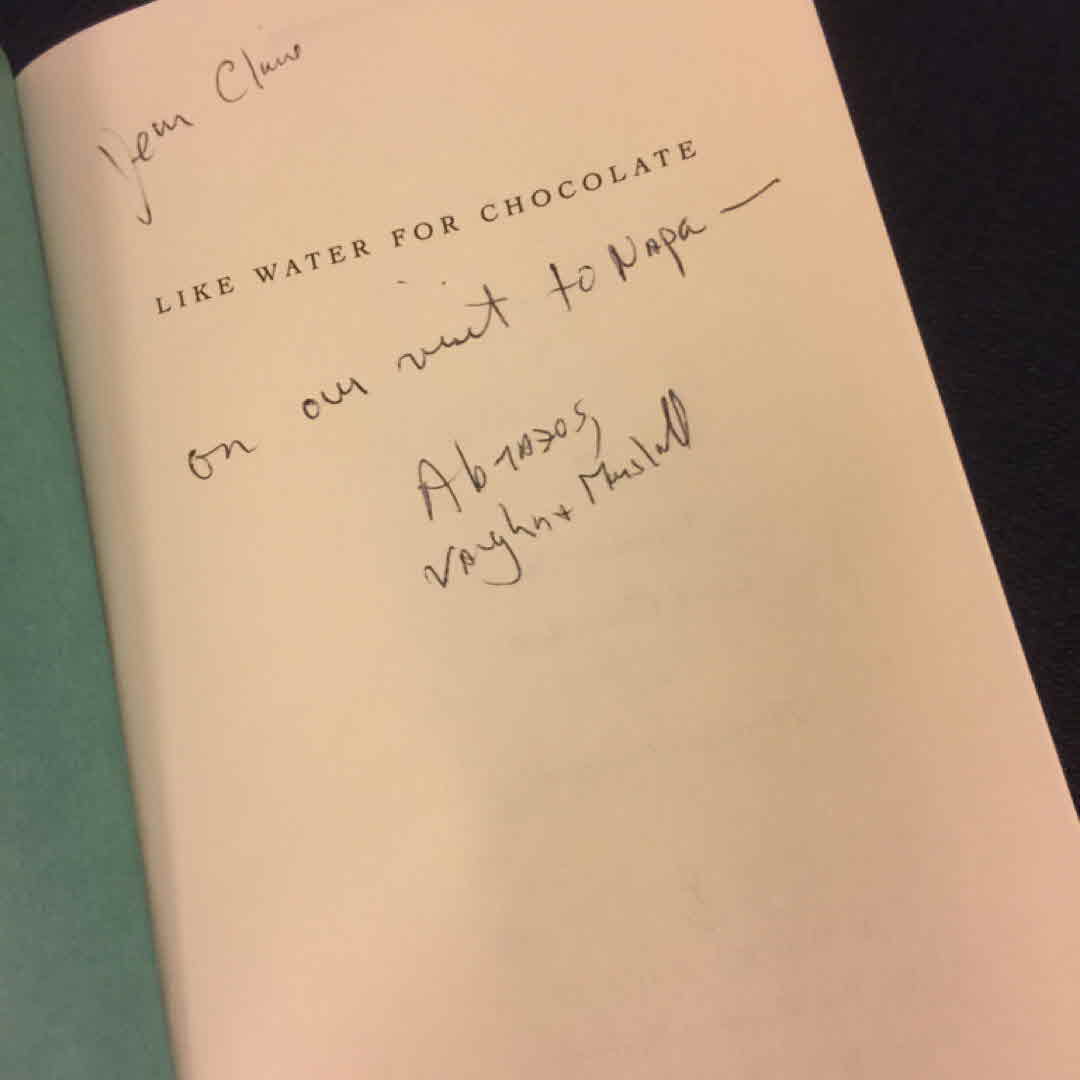 Dear Claire
LIKE WATER FOR CHOCOLATE
on our visit to Napa —
Abrazos,
Vaughn + Marshall